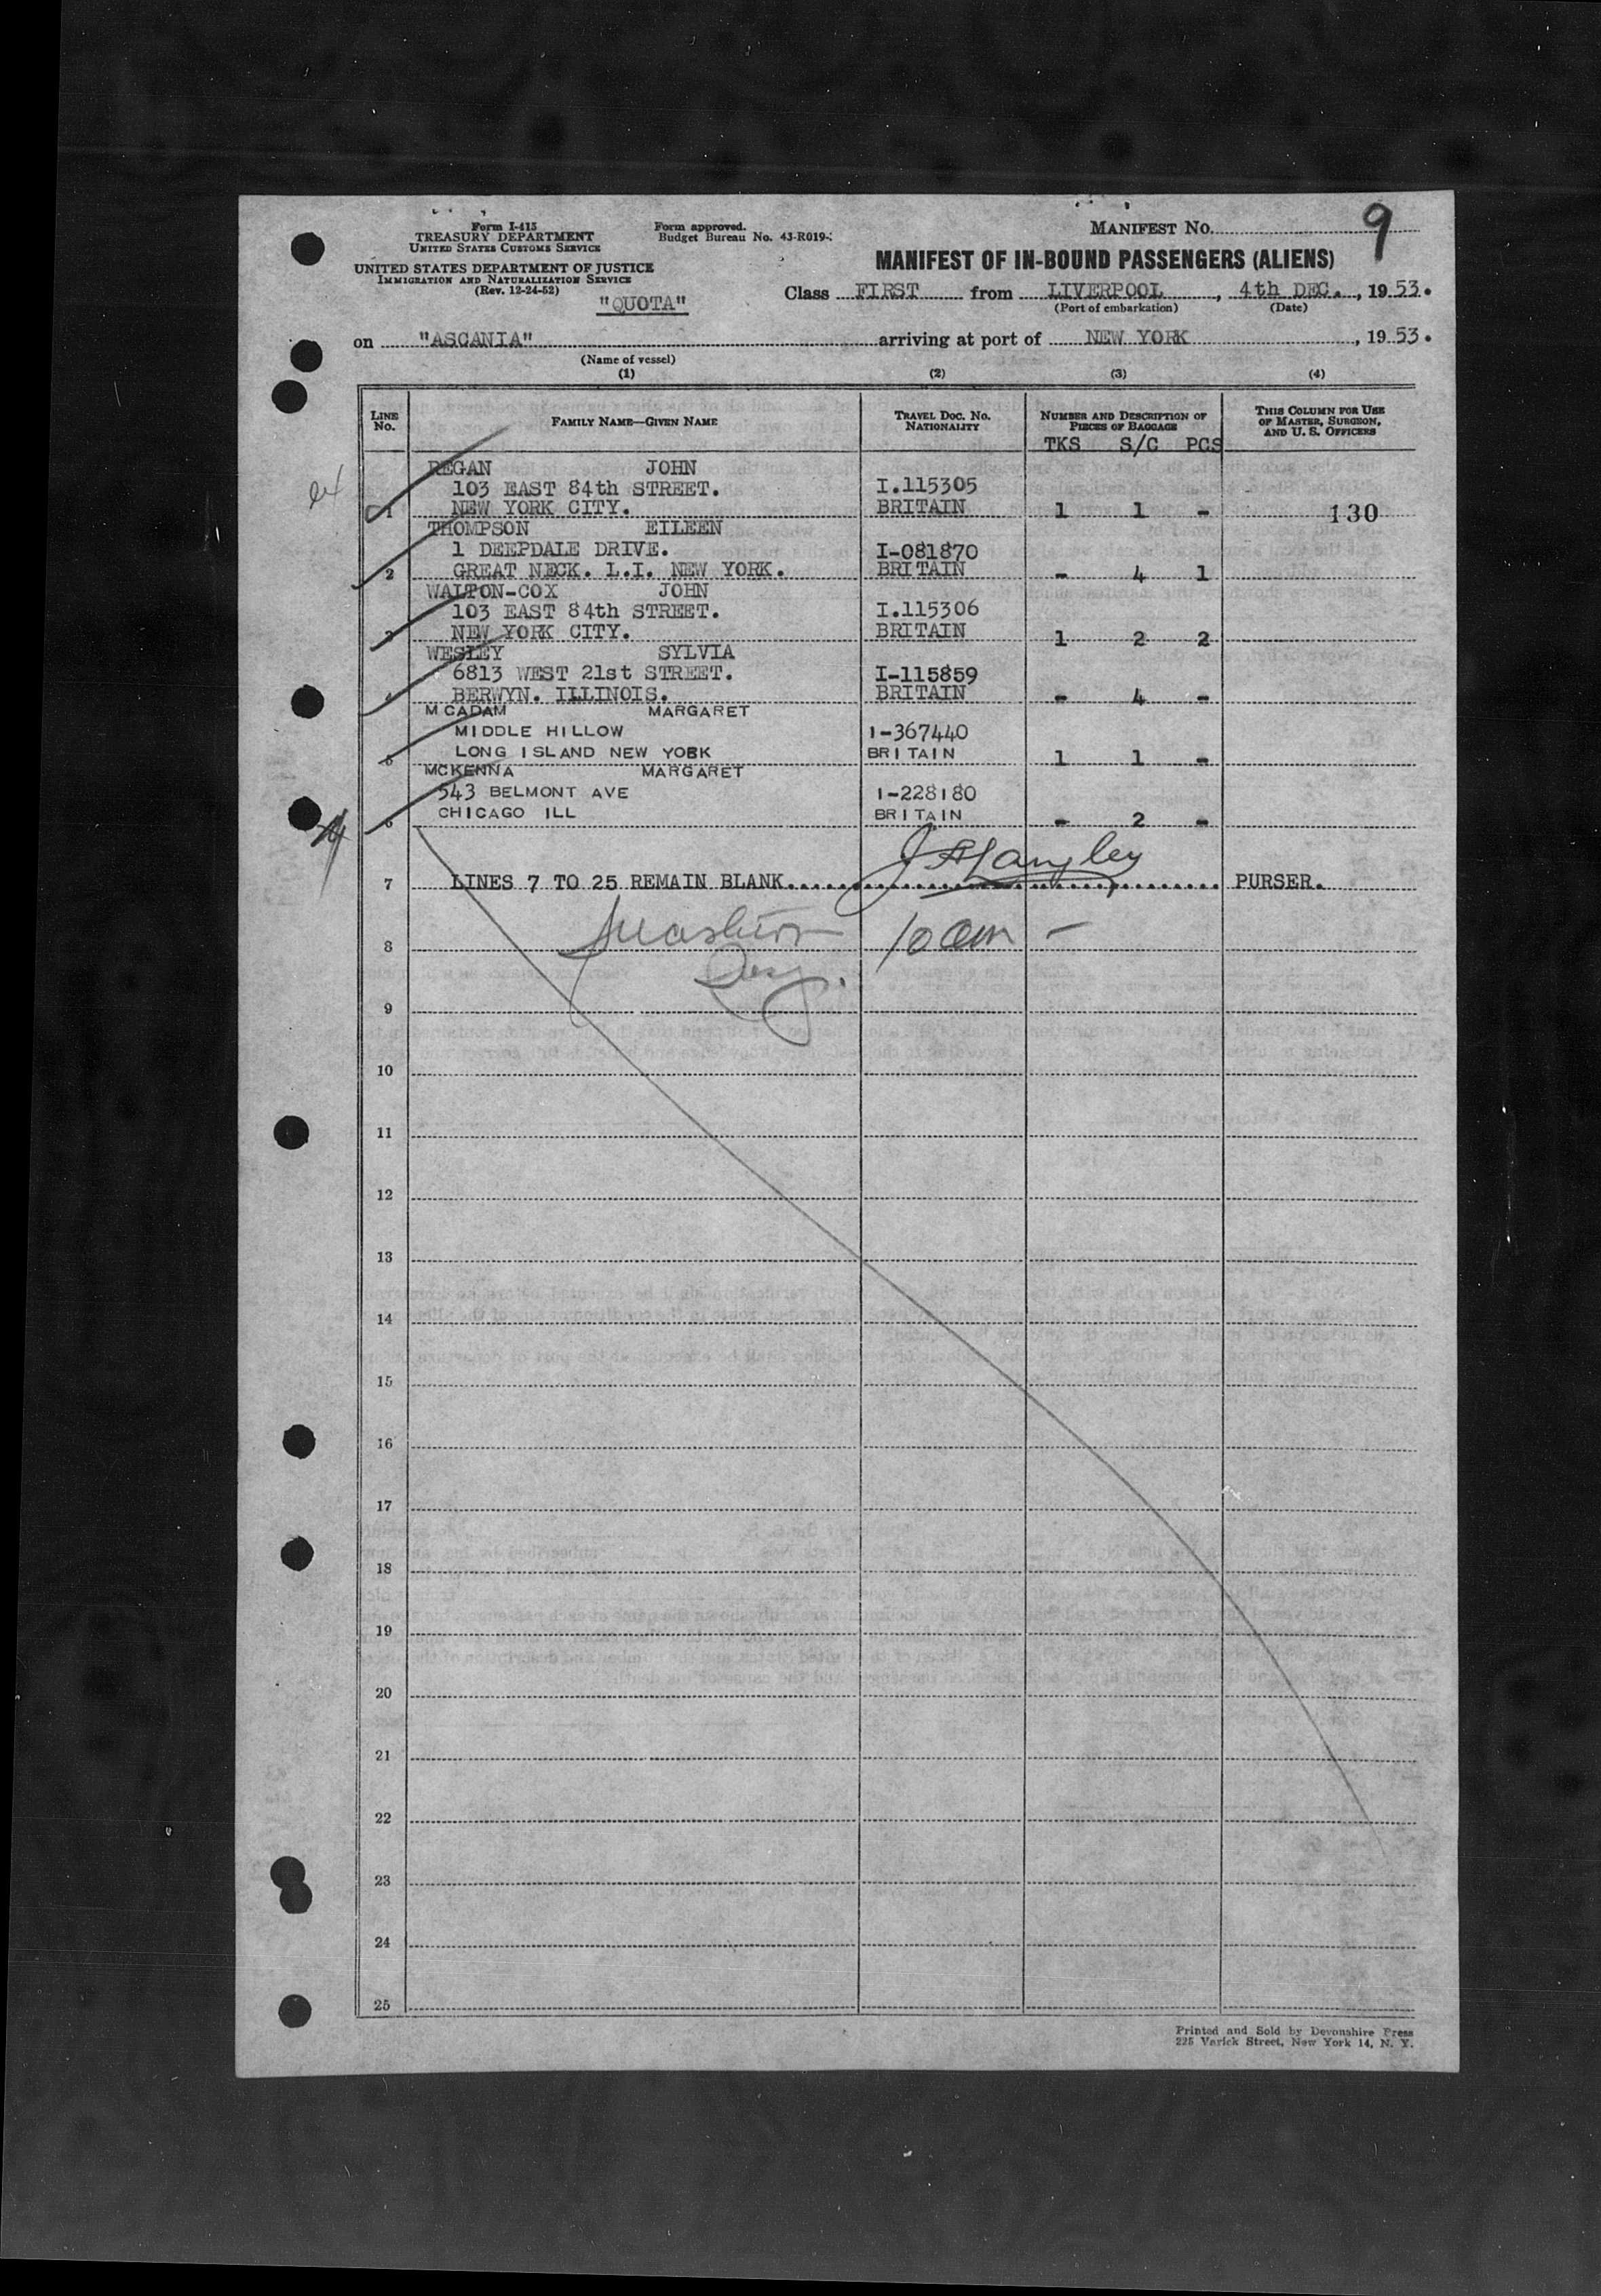 Form I-415
TREASURY DEPARTMENT
UNITED STATES CUSTOMS SERVICE
UNITED STATES DEPARTMENT OF JUSTICE
IMMIGRATION AND NATURALIZATION SERVICE
(Rev. 12-24-52)
"QUOTA"
Form approved.
Budget Bureau No. 43-R019-
MANIFEST No. 9
MANIFEST OF IN-BOUND PASSENGERS (ALIENS)
Class FIRST from LIVERPOOL, 4th DEC., 1953.
(Port of embarkation) (Date)
on "ASCANIA" arriving at port of NEW YORK, 1953.
(Name of vessel)
(1) (2) (3) (4)
LINE No. FAMILY NAME—GIVEN NAME TRAVEL DOC. NO. NATIONALITY NUMBER AND DESCRIPTION OF PIECES OF BAGGAGE THIS COLUMN FOR USE OF MASTER, SURGEON, AND U. S. OFFICERS
TKS S/C PCS
REGAN JOHN
103 EAST 84th STREET. I.115305
1 NEW YORK CITY. BRITAIN 1 1 - 130
THOMPSON EILEEN
1 DEEPDALE DRIVE. I-081870
2 GREAT NECK. L.I. NEW YORK. BRITAIN - 4 1
WALTON-COX JOHN
103 EAST 84th STREET. I.115306
3 NEW YORK CITY. BRITAIN 1 2 2
WESLEY SYLVIA
6813 WEST 21st STREET. I-115859
4 BERWYN. ILLINOIS. BRITAIN - 4 -
MCADAM MARGARET
MIDDLE HILLOW I-367440
5 LONG ISLAND NEW YORK BRITAIN 1 1 -
MCKENNA MARGARET
543 BELMONT AVE I-228180
6 CHICAGO ILL BRITAIN - 2 -
7 LINES 7 TO 25 REMAIN BLANK. J A Langley PURSER.
8 10 am -
9
10
11
12
13
14
15
16
17
18
19
20
21
22
23
24
25
Printed and Sold by Devonshire Press
225 Varick Street, New York 14, N. Y.